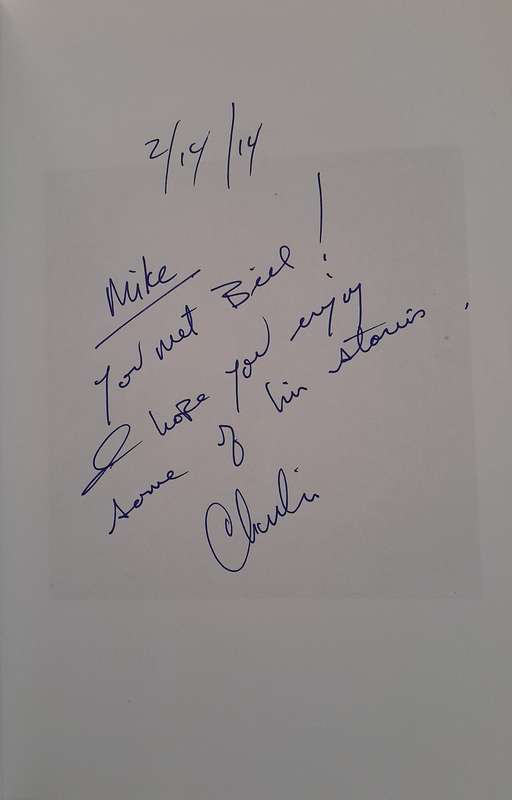 2/14/14
Mike
You met Bill!
I hope you enjoy
some of his stories.
Charlie